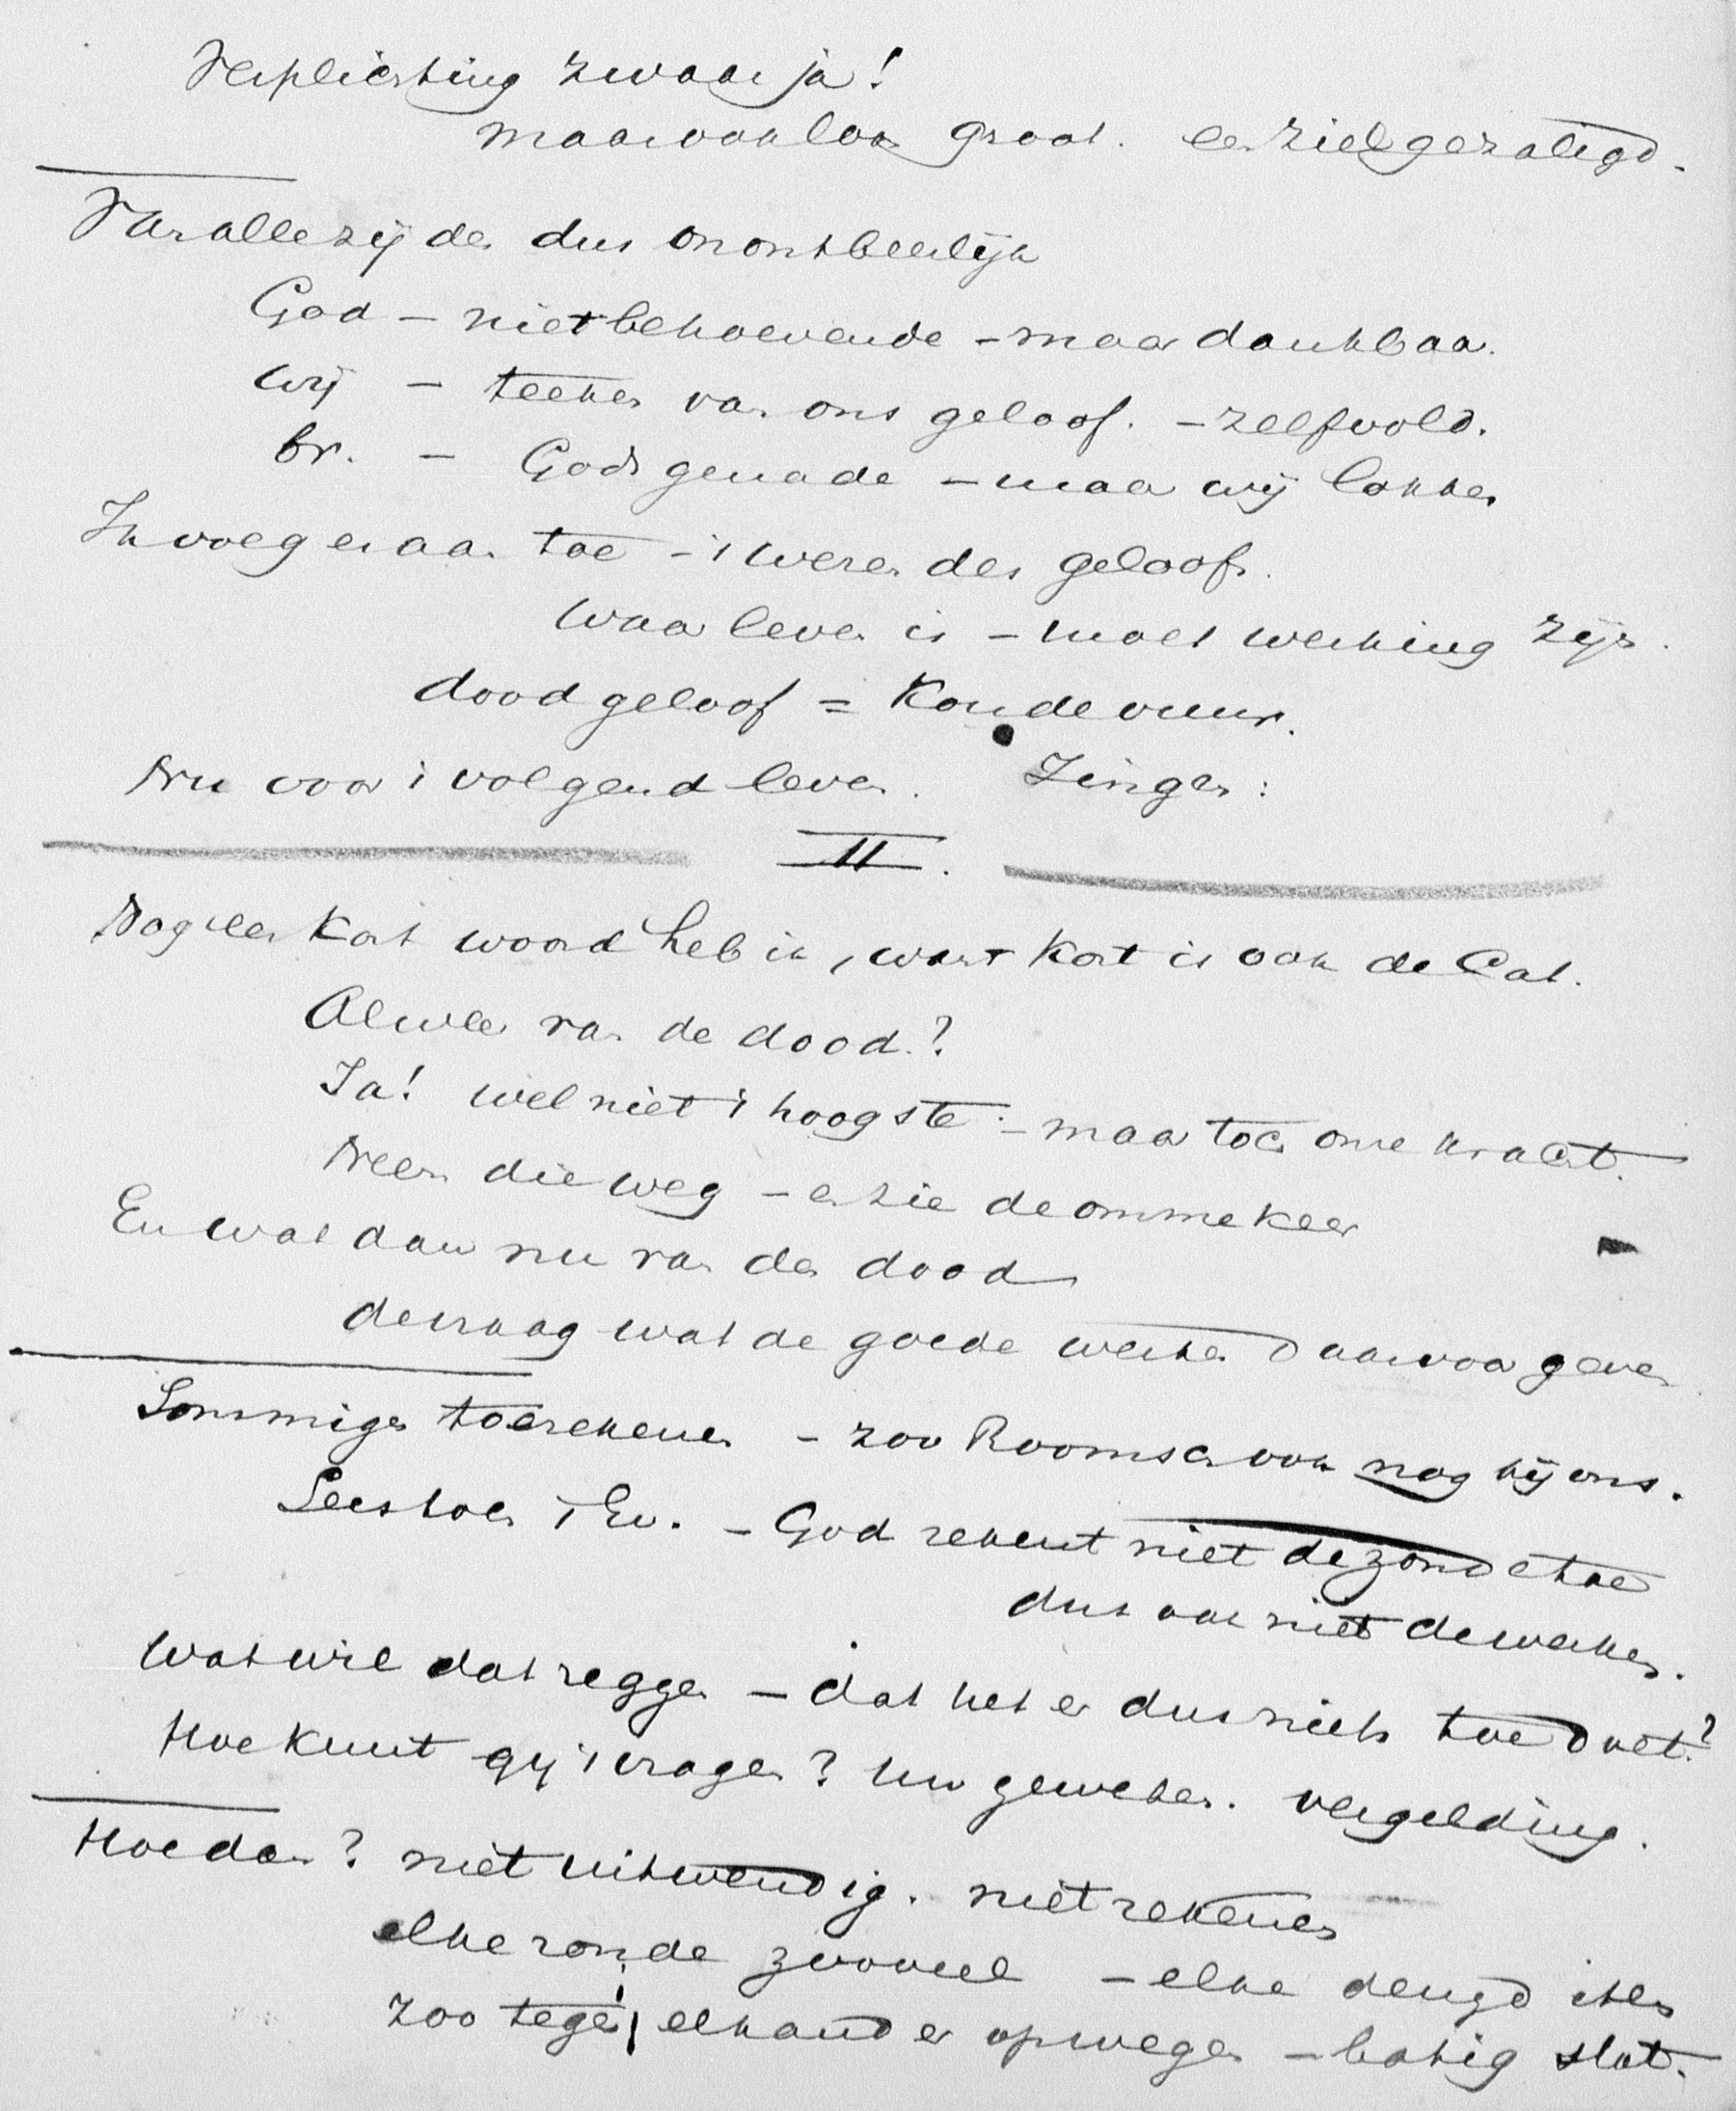 Verplichting zwaar ja!
maar ook loon groot. een ziel gezaligd.
Van alle zijden dus onontbeerlijk
God – niet behoevende – maar dankbaar.
wij – teeken van ons geloof. – zelfvold.
br. – Gods genade – maar wij lokken
Ik voeg er aan toe – 't wezen des geloofs.
Waar leven is – moet werking zijn.
dood geloof = Koude vuur.
Nu voor 't volgend leven. Zingen:
II.
Nog een kort woord heb ik, want kort is ook de Cat.
Alweer van de dood?
Ja! wel niet 't hoogste – maar toch onze kracht.
Neem die weg – en zie de ommekeer
En wat dan nu van den dood
de vraag wat de goede werken daarvoor geven
Sommigen toerekenen – zoo Roomsch ook nog bij ons.
Lees toch 't Ev. – God rekent niet de zonde toe
dus ook niet de werken.
Wat wil dat zeggen – dat het er dus niets toe doet?
Hoe kunt gij 't vragen? Uw geweten. vergelding.
Hoe dan? niet uitwendig. niet rekenen
elke zonde zooveel – elke deugd
zoo tegen elkander opwegen – batig slot.